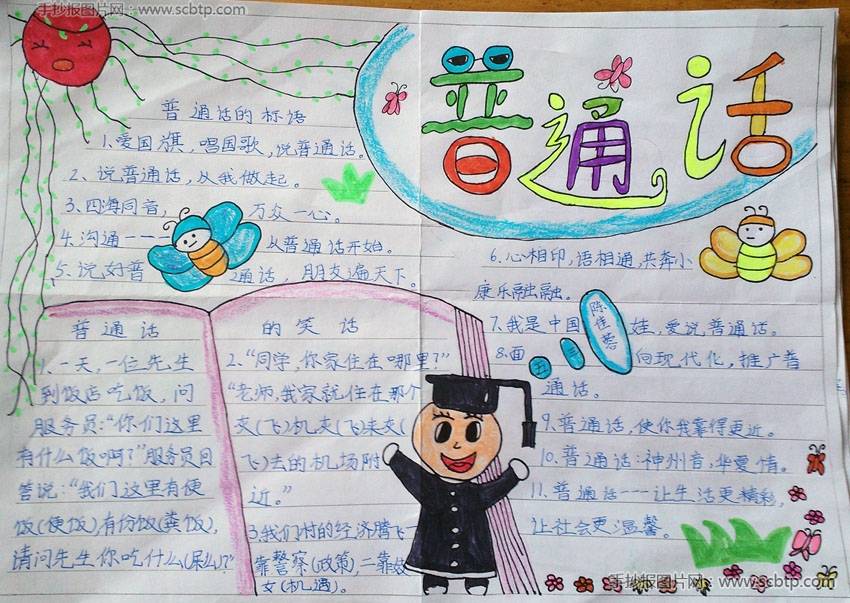 手抄报图片网：www.scbtp.com
普通话
普通话的标语
1、爱国旗，唱国歌，说普通话。
2、说普通话，从我做起。
3、四海同音，万众一心。
4、沟通——从普通话开始。
5、说好普通话，朋友遍天下。
6、心相印，语相通，共奔小
康乐融融。
7、我是中国娃，爱说普通话。
8、面向现代化，推广普
通话。
9、普通话，使你我靠得更近。
10、普通话：神州音，华夏情。
11、普通话---让生活更精彩，
让社会更温馨。
五
陈佳蓉
普通话的笑话
1、一天，一位先生
到饭店吃饭，问
服务员：“你们这里
有什么饭啊？”服务员回
答说：“我们这里有便
饭(便饭)，有份饭(粪饭)，
请问先生你吃什么(屎么)？”
2、“同学，你家住在哪里？”
“老师，我家就住在那个
灰(飞)机灰(飞)来灰(
飞)去的机场附
近。”
3、我们村的经济腾飞一
靠警察(政策)，二靠妓
女(机遇)。
手抄报图片网：www.scbtp.com